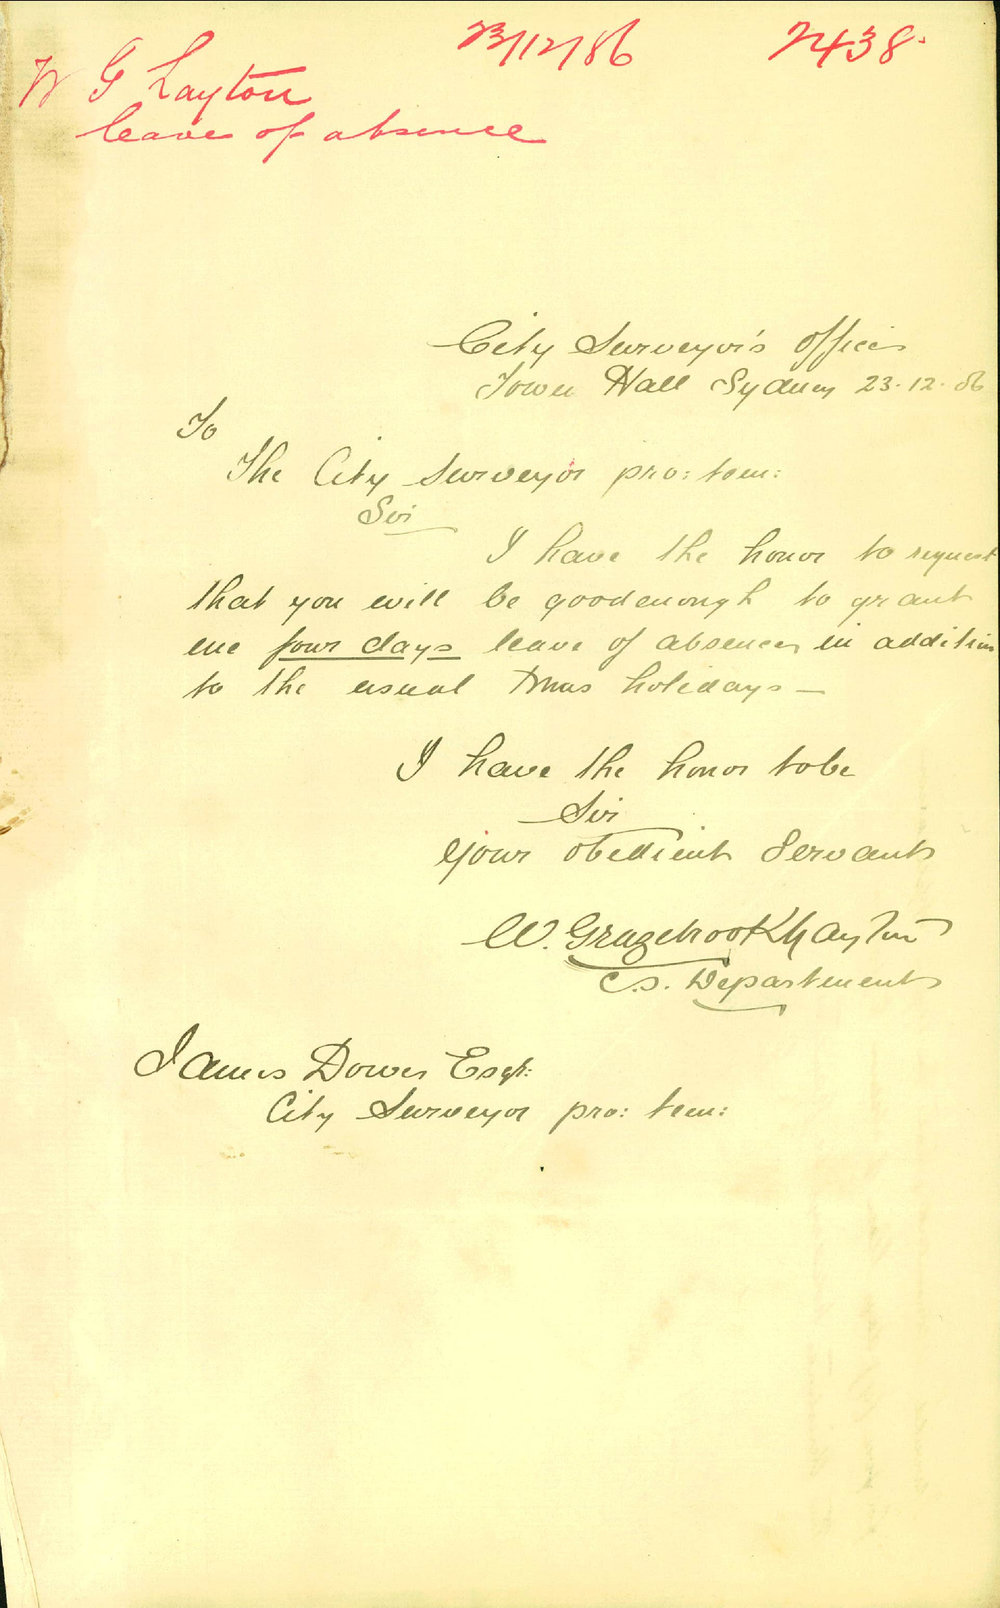 23/12/86 2438.
W G Layton
leave of absence
City Surveyor's Office
Town Hall Sydney 23.12.86
To
The City Surveyor pro: tem:
Sir
I have the honor to request
that you will be good enough to grant
me four days leave of absence, in addition
to the usual Xmas holidays —
I have the honor to be
Sir
Your obedient Servant
W. Grazebrook Layton
C.S. Department
James Dower Esqr:
City Surveyor pro: tem: